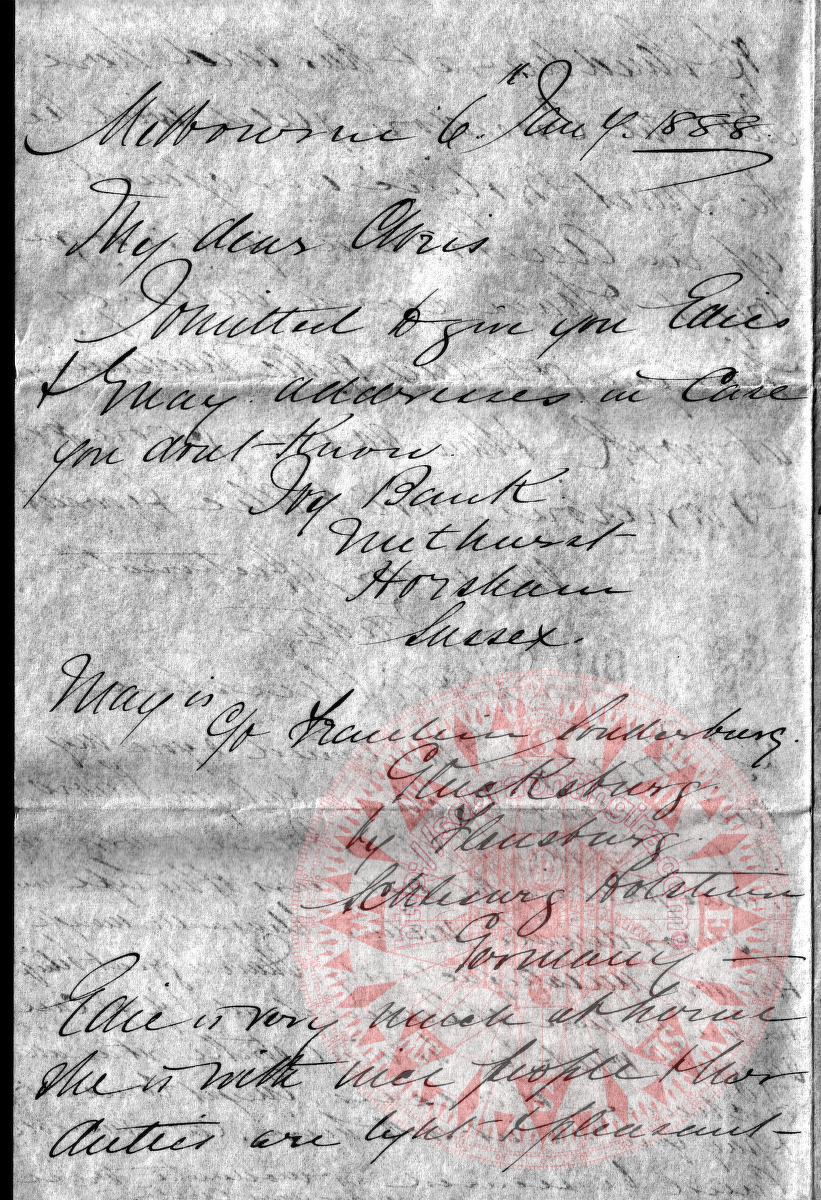 Melbourne 6th Jany. 1888
My dear Chris
I omitted to give you Edies
& May addresses in Case
you dont Know
Ivy Bank
Nuthurst
Horsham
Sussex.
May is
c/o Fraulein Sonderburg.
Glucksburg.
by Flensburg.
Schleswig Holstein
Germany —
Edie is very much at home
she is with nice people & her
duties are light & pleasant —